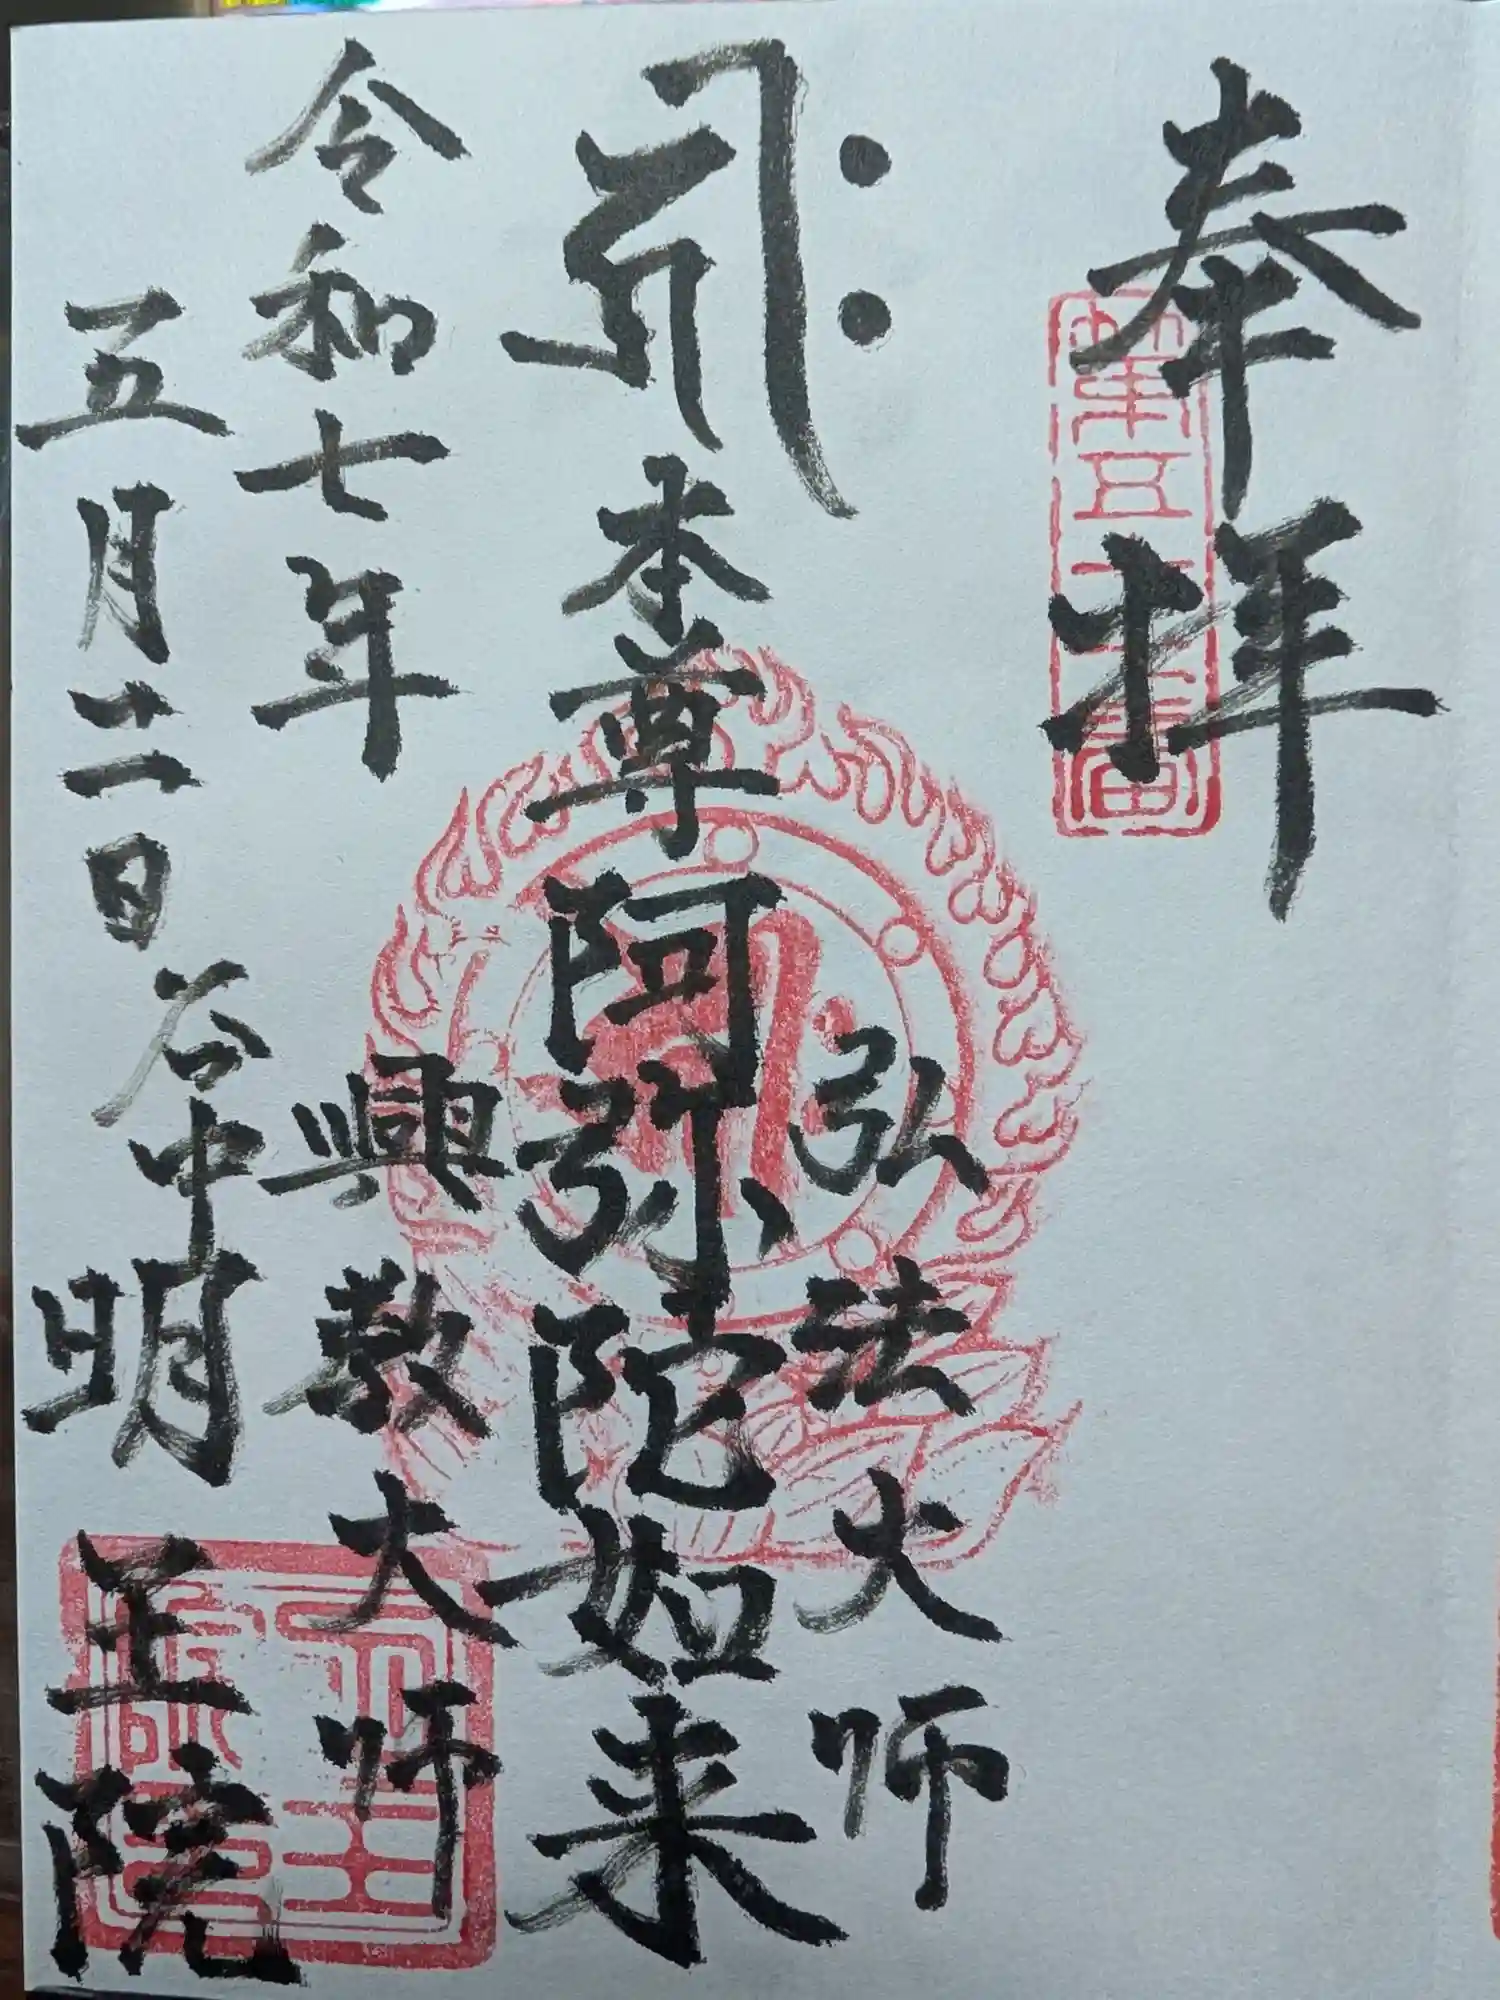 奉拝
第五十番
𑖮𑖿𑖨𑖱𑖾 本尊阿弥陀如来
弘法大師
興教大師
令和七年
五月十二日
谷中
明王院